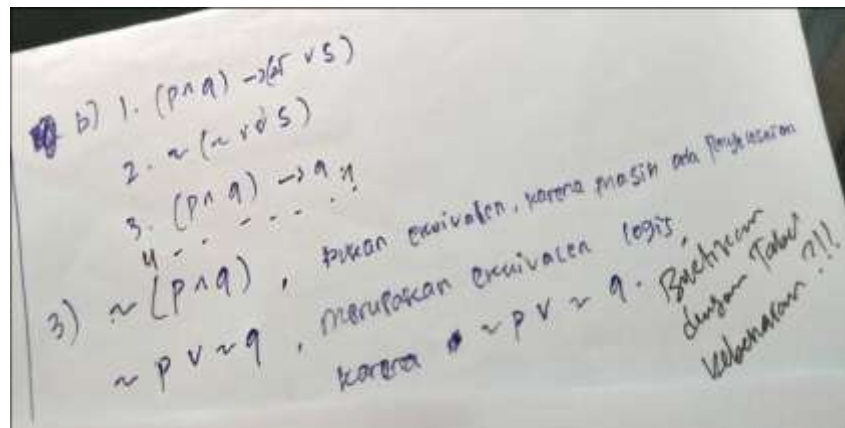 b) 1. (p ∧ q) → (r ∨ s)
2. ~ (~ r ∨ s)
3. (p ∧ q) → q
4 - - - - - - ?
3) ~ (p ∧ q) , bukan ekuivalen, karena masih ada penyelesaian
~ p ∨ ~ q , merupakan ekuivalen logis,
karena ~ p ∨ ~ q.
Buktikan
dengan Tabel
kebenaran ?!!